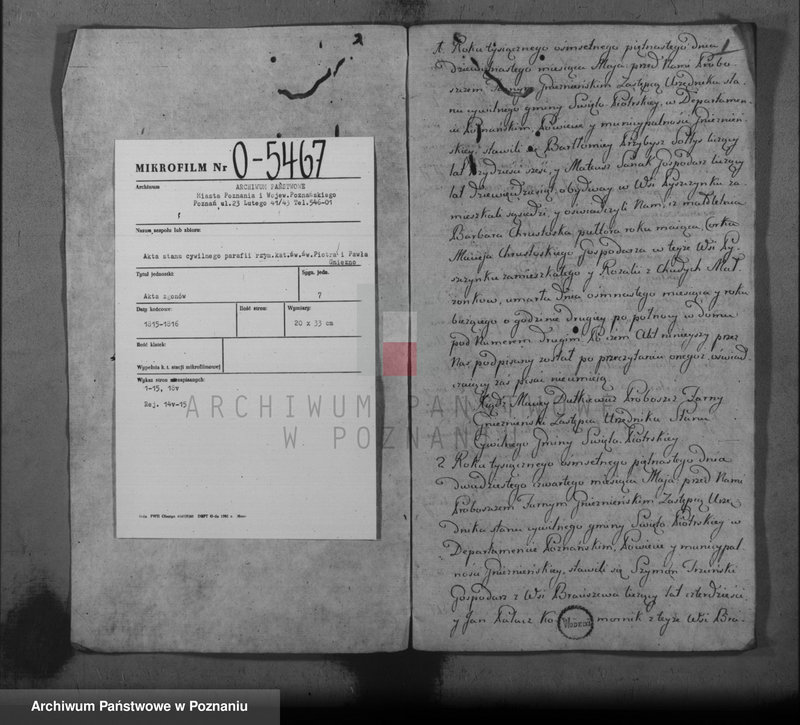 MIKROFILM Nr O-5467
Archiwum
ARCHIWUM PAŃSTWOWE
Miasta Poznania i Wojew. Poznańskiego
Poznań ul. 23 Lutego 41/43 Tel. 546-01
Nazwa zespołu lub zbioru:
Akta stanu cywilnego parafii rzym.kat.św.św.Piotra i Pawła
Gniezno
Tytuł jednostki:
Sygn. jedn.
Akta zgonów
7
Daty końcowe:
Ilość stron:
Wymiary:
1815-1816
20 x 33 cm
Ilość klatek:
Wypełnia k. t. stacji mikrofilmowej
Wykaz stron niezapisanych:
1-15, 16v
Rej. 14v-15
1. Roku tysiącznego osmsetnego piętnastego dnia
dziewiętnastego miesiąca Maja przed Nami Probo-
szczem Farnym Gnieznieńskim Zastępcą Urzędnika sta-
nu cywilnego gminy Święto Piotrskiey, w Departamen-
cie Poznańskim, Powiecie y municypalności Gnieznień-
skiey stawili się Bartłomiey Przybysz Sołtys liczący
lat trzydzieści sześć, y Mateusz Sanak Gospodarz liczący
lat dziewięćdziesiąt obydway w Wsi Pyszczynku za
mieszkali sąsiedzi, y oświadczyli Nam, iż maloletnia
Barbara Chrustoska pułtora roku maiąca, Corka
Macieja Chrustoskiego Gospodarza w teyże Wsi Py-
szczynku zamieszkałego y Rozalii z Chudych Mał-
żonkow, umarła dnia osmnastego miesiąca y roku
bieżącego o godzinie drugiey po północy w domu
pod Numerem drugim. Po czem Akt ninieyszy przez
Nas podpisany został po przeczytaniu onegoż, oświad-
czaiący zaś pisać nieumieią.
Xiądz Maciey Dutkiewicz Proboszcz Farny
Gnieznieński Zastępca Urzędnika Stanu
Cywilnego Gminy Święto Piotrskiey
2 Roku tysiącznego osmsetnego piętnastego dnia
dwudziestego czwartego miesiąca Maja przed Nami
Proboszczem Farnym Gnieznieńskim Zastępcą Urzę-
dnika stanu cywilnego gminy Święto Piotrskiey w
Departamencie Poznańskim, Powiecie y municypal-
ności Gnieznieńskiey, stawili się Szymon
Gospodarz z Wsi Braciszewa liczący lat czterdzieści
y Jan Pałacz Ko- mornik z teyże Wsi Bra-
ARCHIWUM PAŃSTWOWE
W POZNANIU
Archiwum Państwowe w Poznaniu